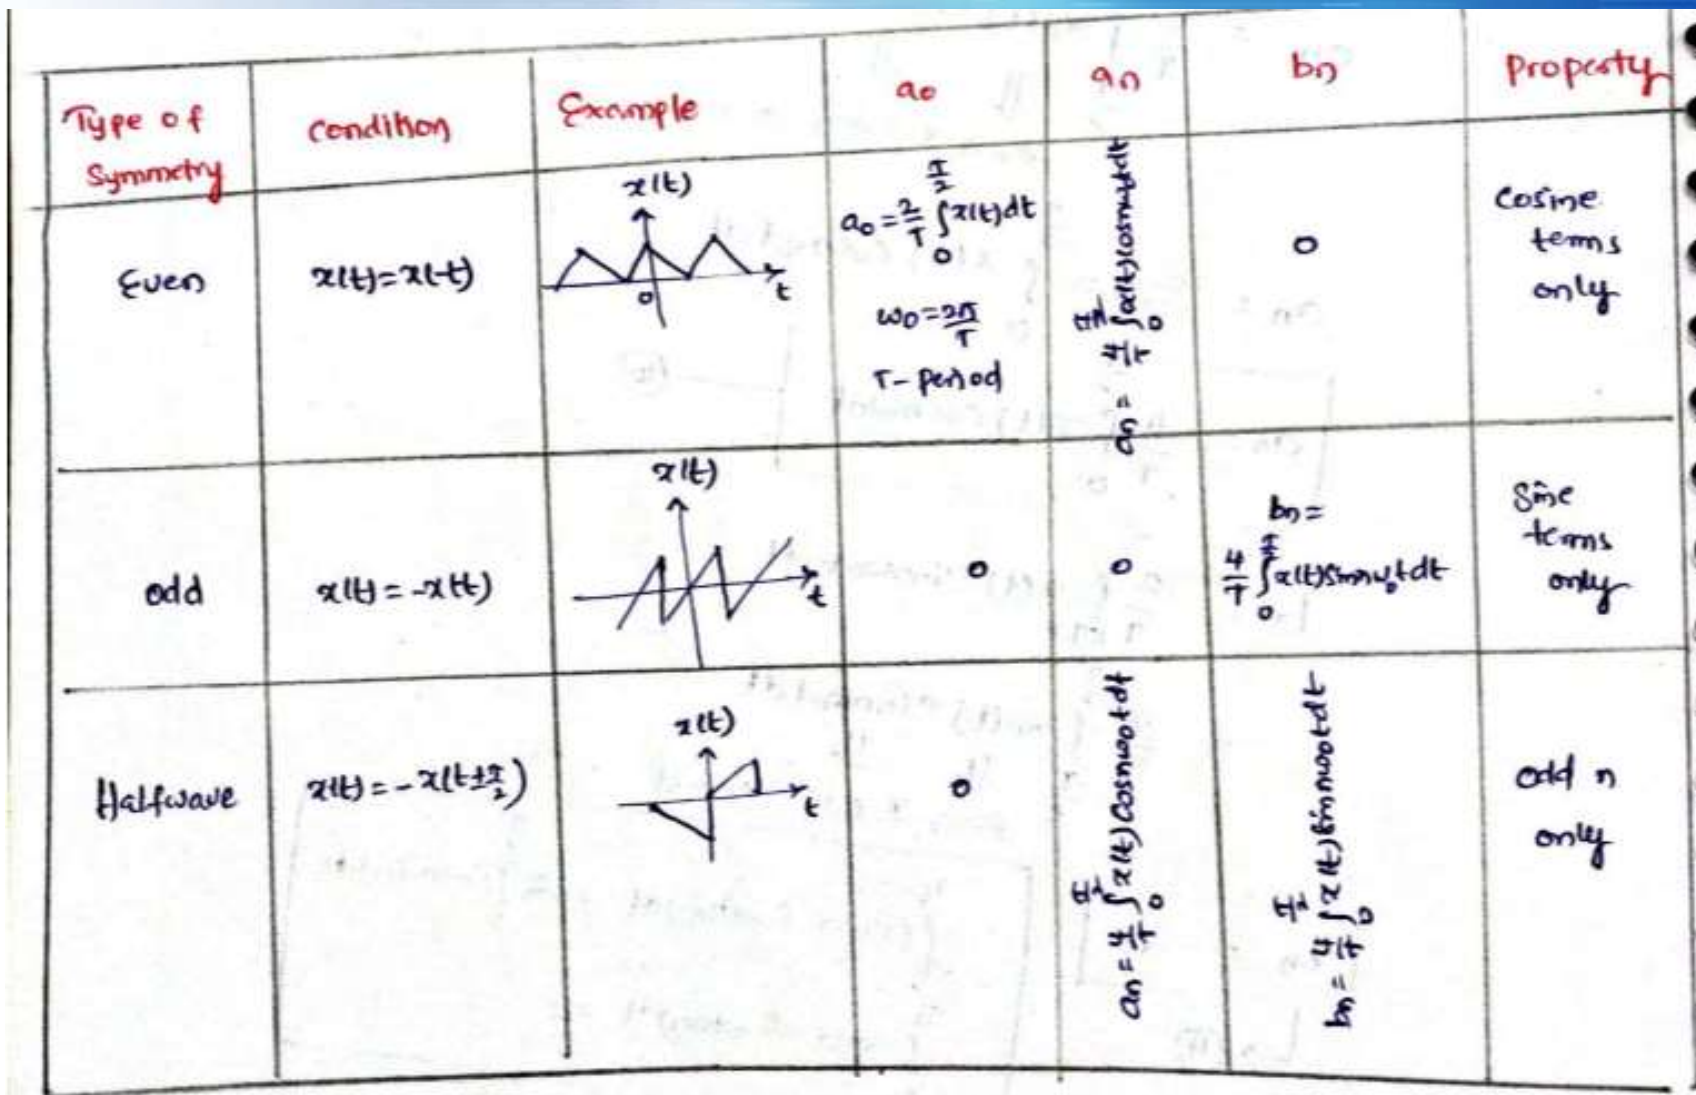 Type of Symmetry
condition
Example
a₀
aₙ
bₙ
property
Even
x(t)=x(-t)
x(t)
0
t
a₀ = 2/T ∫₀^(T/2) x(t)dt
ω₀ = 2π/T
T - period
aₙ = 4/T ∫₀^(T/2) x(t)cosnω₀tdt
0
Cosine
terms
only
odd
x(t) = -x(-t)
x(t)
t
0
0
bₙ =
4/T ∫₀^(T/2) x(t)sinnω₀tdt
Sine
terms
only
Halfwave
x(t) = -x(t±T/2)
x(t)
t
0
aₙ = 4/T ∫₀^(T/2) x(t)cosnω₀tdt
bₙ = 4/T ∫₀^(T/2) x(t)sinnω₀tdt
odd n
only